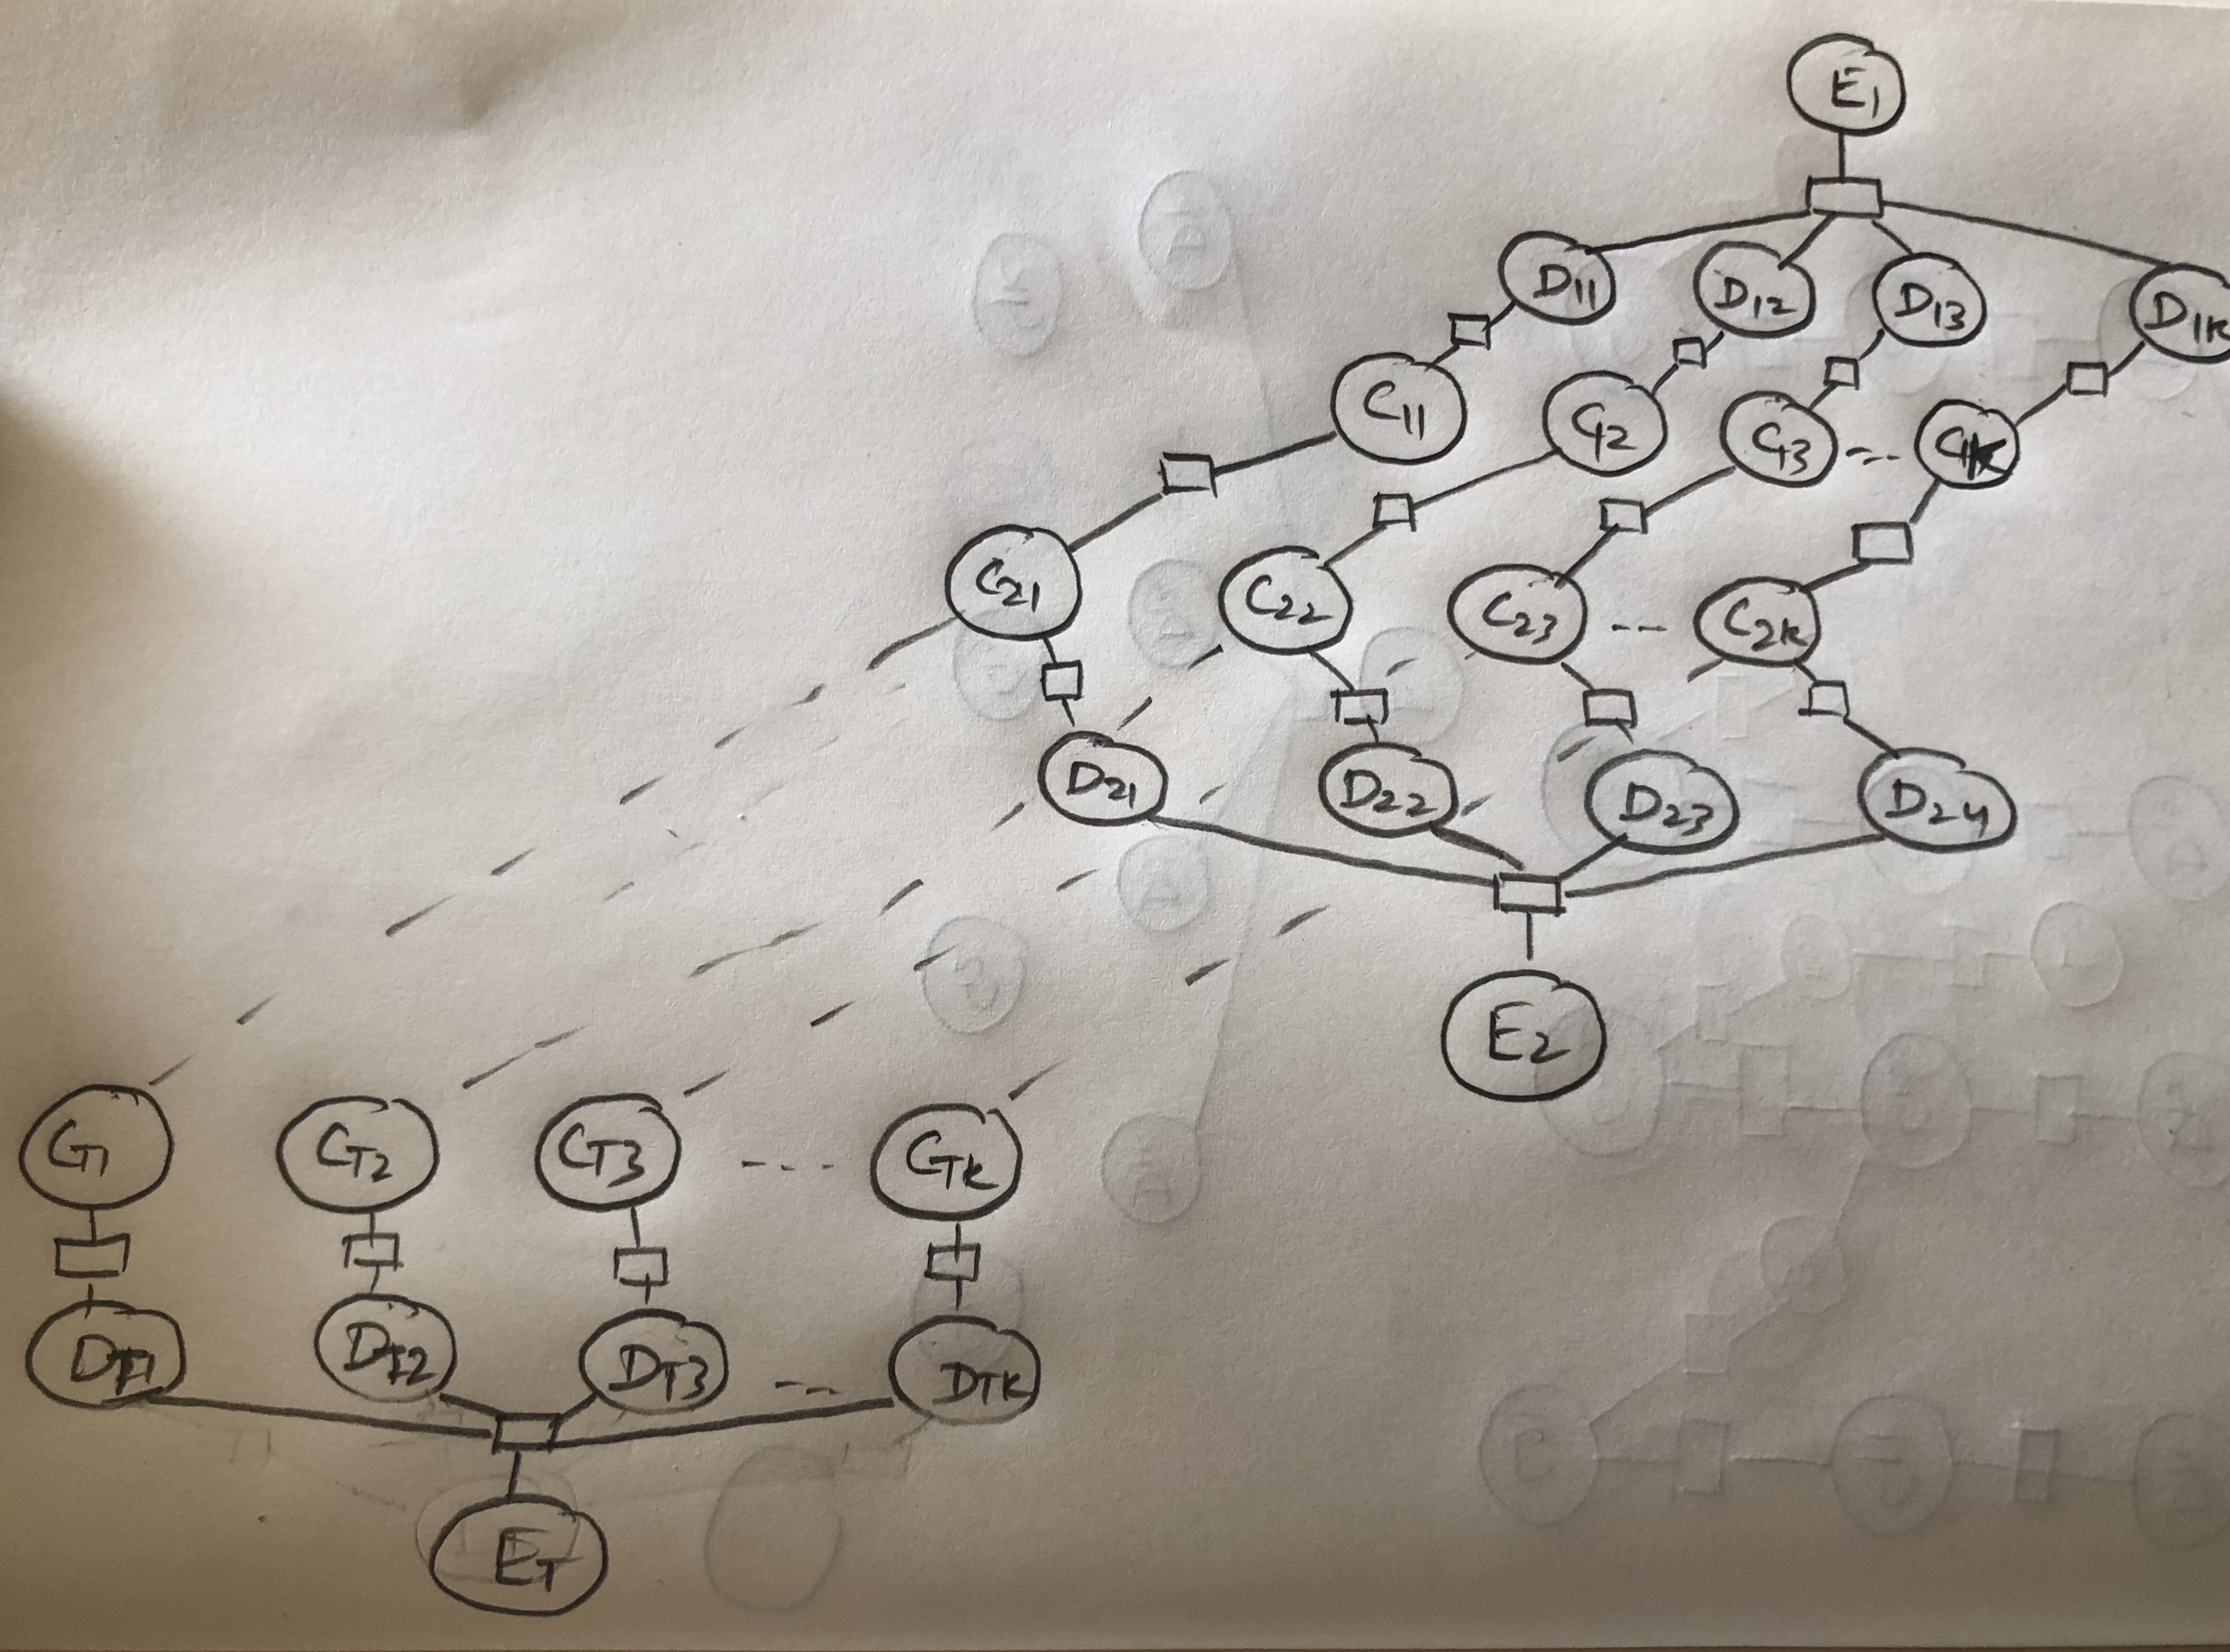 E1
D11 D12 D13 D1K
C11 C12 C13 -- C1K
C21 C22 C23 -- C2K
D21 D22 D23 D24
E2
CT1 CT2 CT3 --- CTK
DT1 DT2 DT3 -- DTK
ET